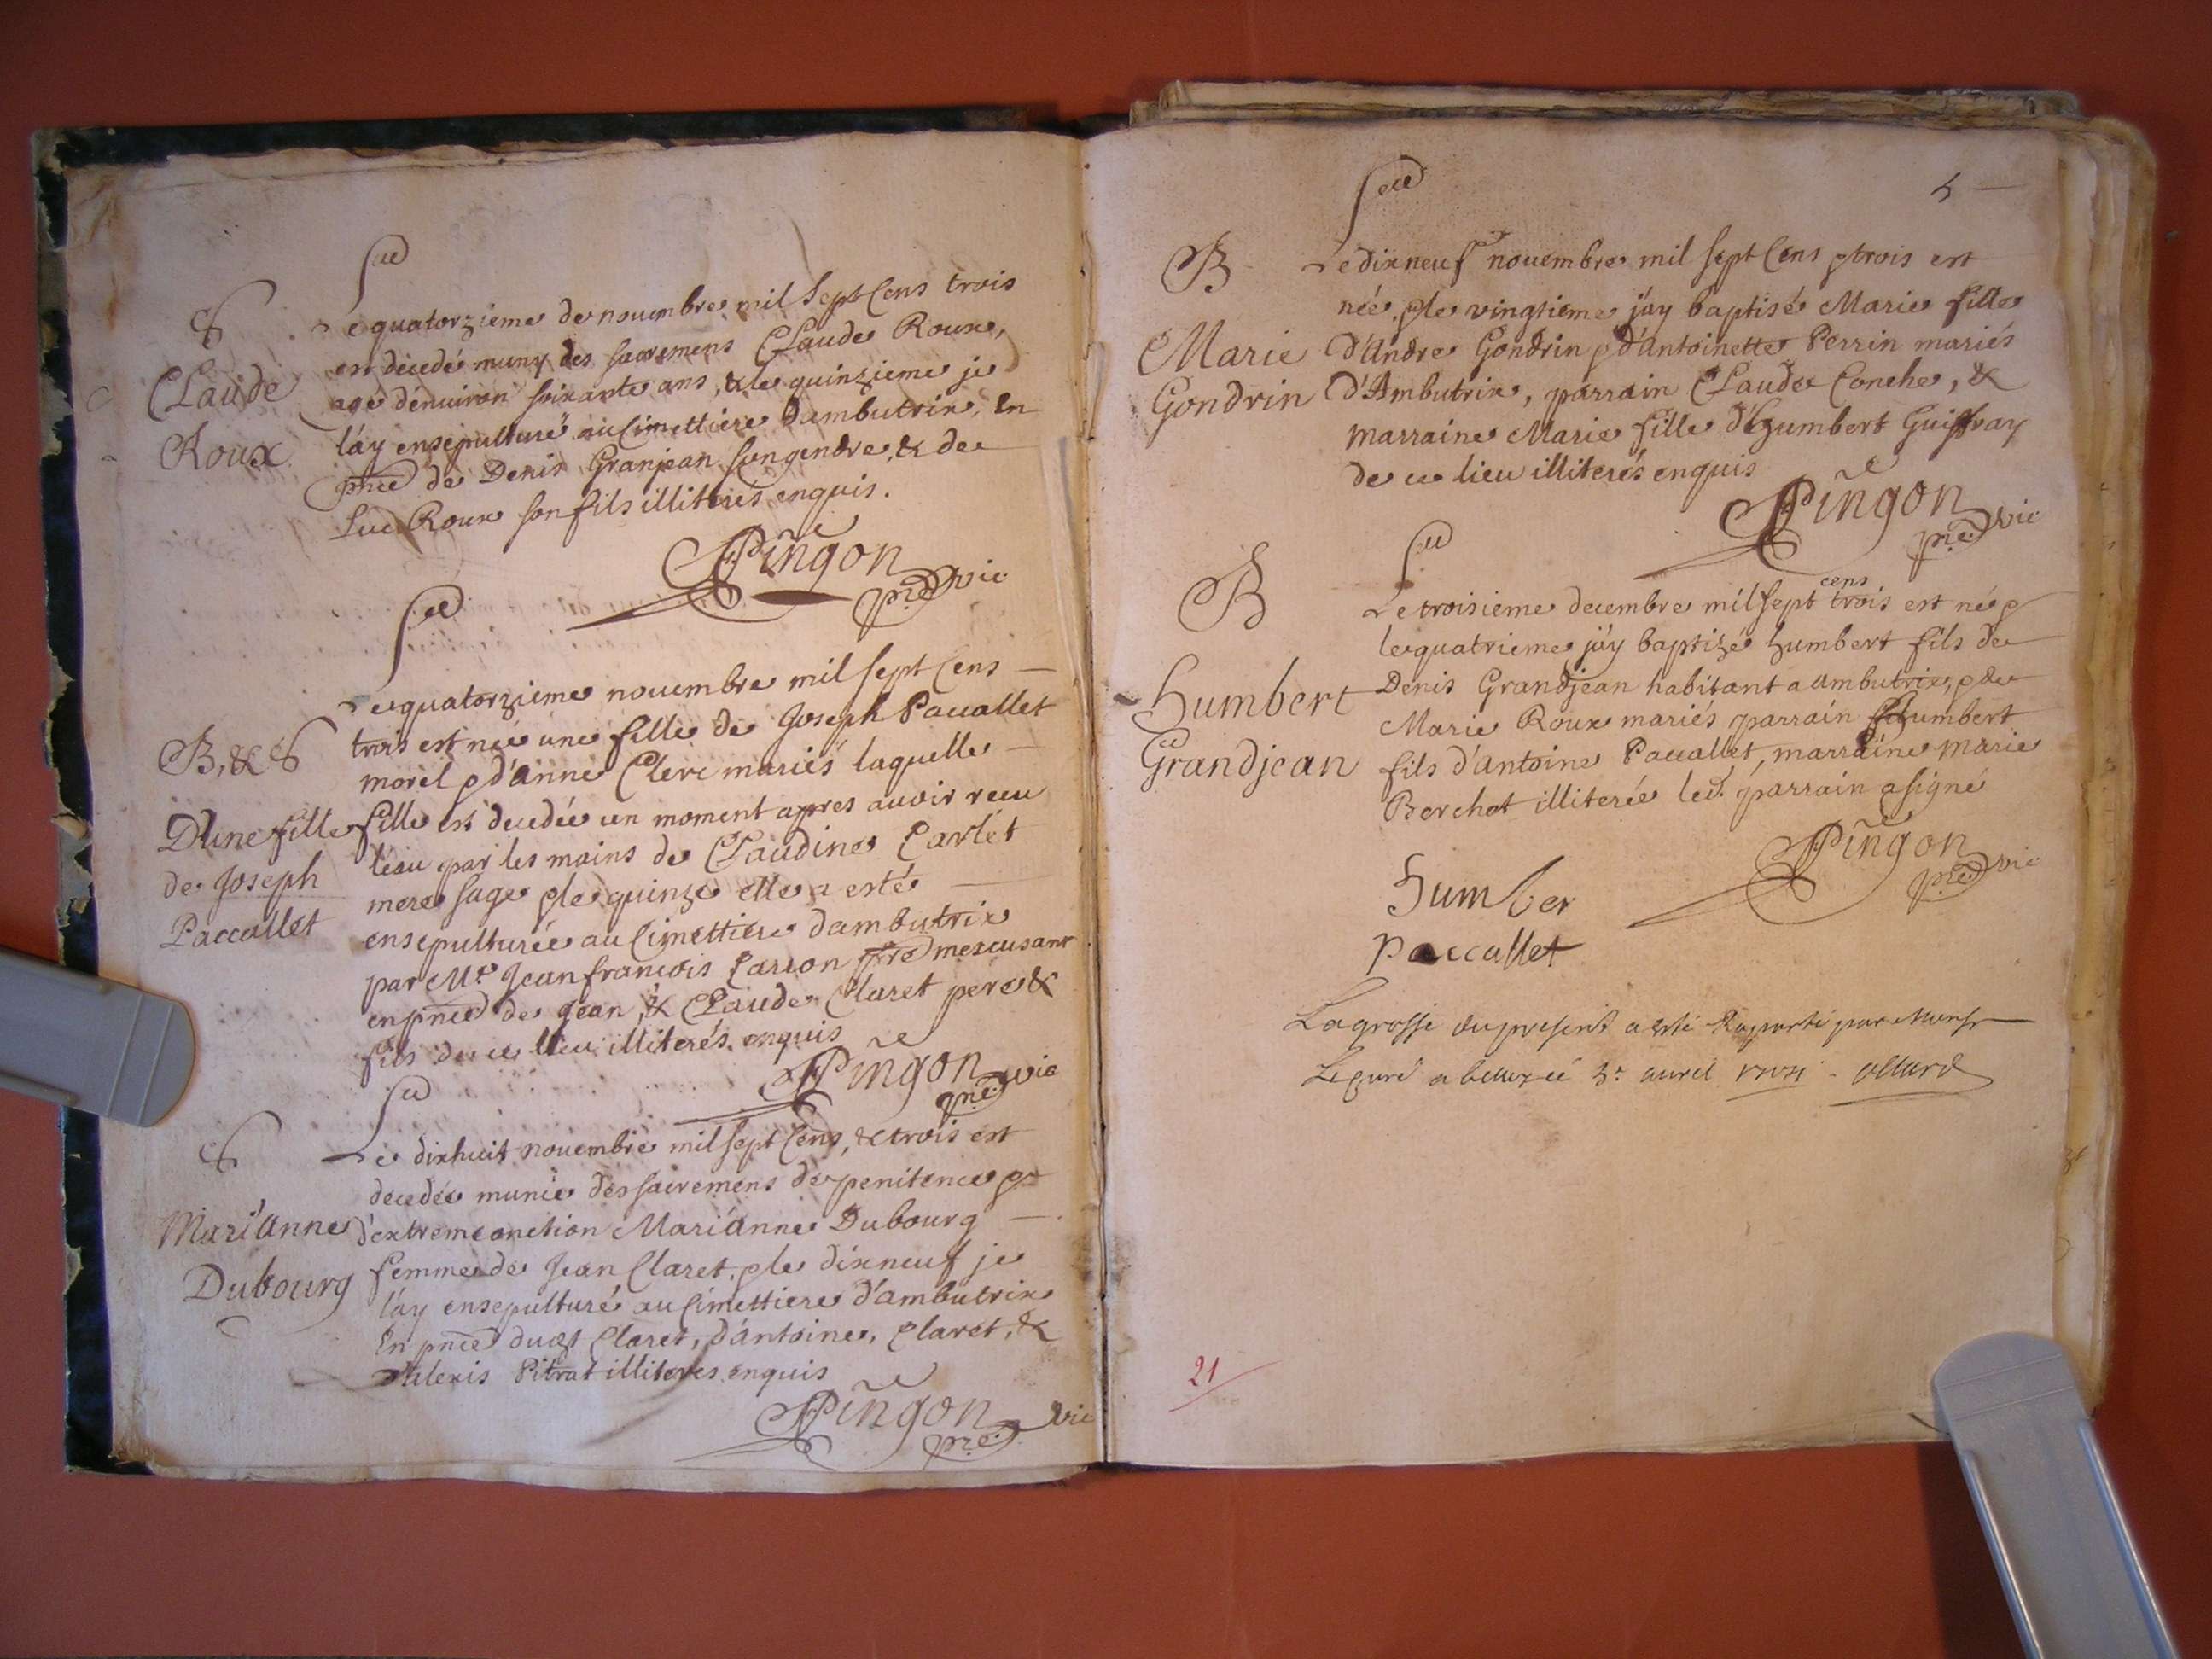 S
Claude
Roux
Le quatorzieme de nouembre mil sept Cens trois
est decedé muny des sacremens Claude Roux,
agé d'enuiron soixante ans, & le quinzieme je
l'ay ensepulturé au Cimettiere d'ambutrix, En
pnce de Denis Granjean son gendre, & de
Luc Roux son fils illiterés enquis.
Pingon
pre vic
B, & S
D'une fille
de Joseph
Paccallet
Le quatorzieme nouembre mil sept Cens
trois est née une fille de Joseph Paccallet
morel & d'anne Clerc mariés laquelle
fille est decedée un moment apres auoir receu
l'eau par les mains de Claudine Carlet
mere sage & le quinze elle a esté
ensepulturée au Cimettiere d'ambutrix
par Mre Jean francois pre m'excusant
en pnce de Jean, & Claude Claret pere &
fils de ce lieu illiterés enquis
Pingon
pre vic
S
Marianne
Dubourg
Le dixhuit nouembre mil sept Cens, & trois est
decedée munie des sacremens de penitence &
d'extremeonction Marianne Dubourg
femme de Jean Claret, & le dixneuf je
l'ay ensepulturé au Cimettiere d'ambutrix
En pnce dudt Claret, d'antoine, Claret, &
d'alexis Pitrat illiterés enquis
Pingon
pre vic
B
Marie
Gondrin
Le dixneuf nouembre mil sept Cens & trois est
née, & le vingtieme j'ay baptisé Marie fille
d'Andre Gondrin & d'Antoinette Perrin mariés
d'Ambutrix, parrain Claude Conche, &
marraine Marie fille d'humbert Guiffray
de ce lieu illiterés enquis
Pingon
pre vic
B
humbert
Grandjean
cens
Le troisieme decembre mil sept trois est né &
le quatrieme j'ay baptizé humbert fils de
Denis Grandjean habitant a ambutrix, & de
Marie Roux mariés parrain humbert
fils d'antoine Paccallet, marraine marie
Berchet illiterée led. parrain a signé
Pingon
pre vic
humber
paccallet
La grosse du present a esté Raporté par Monsr
Le curé a ce 3e auril
21